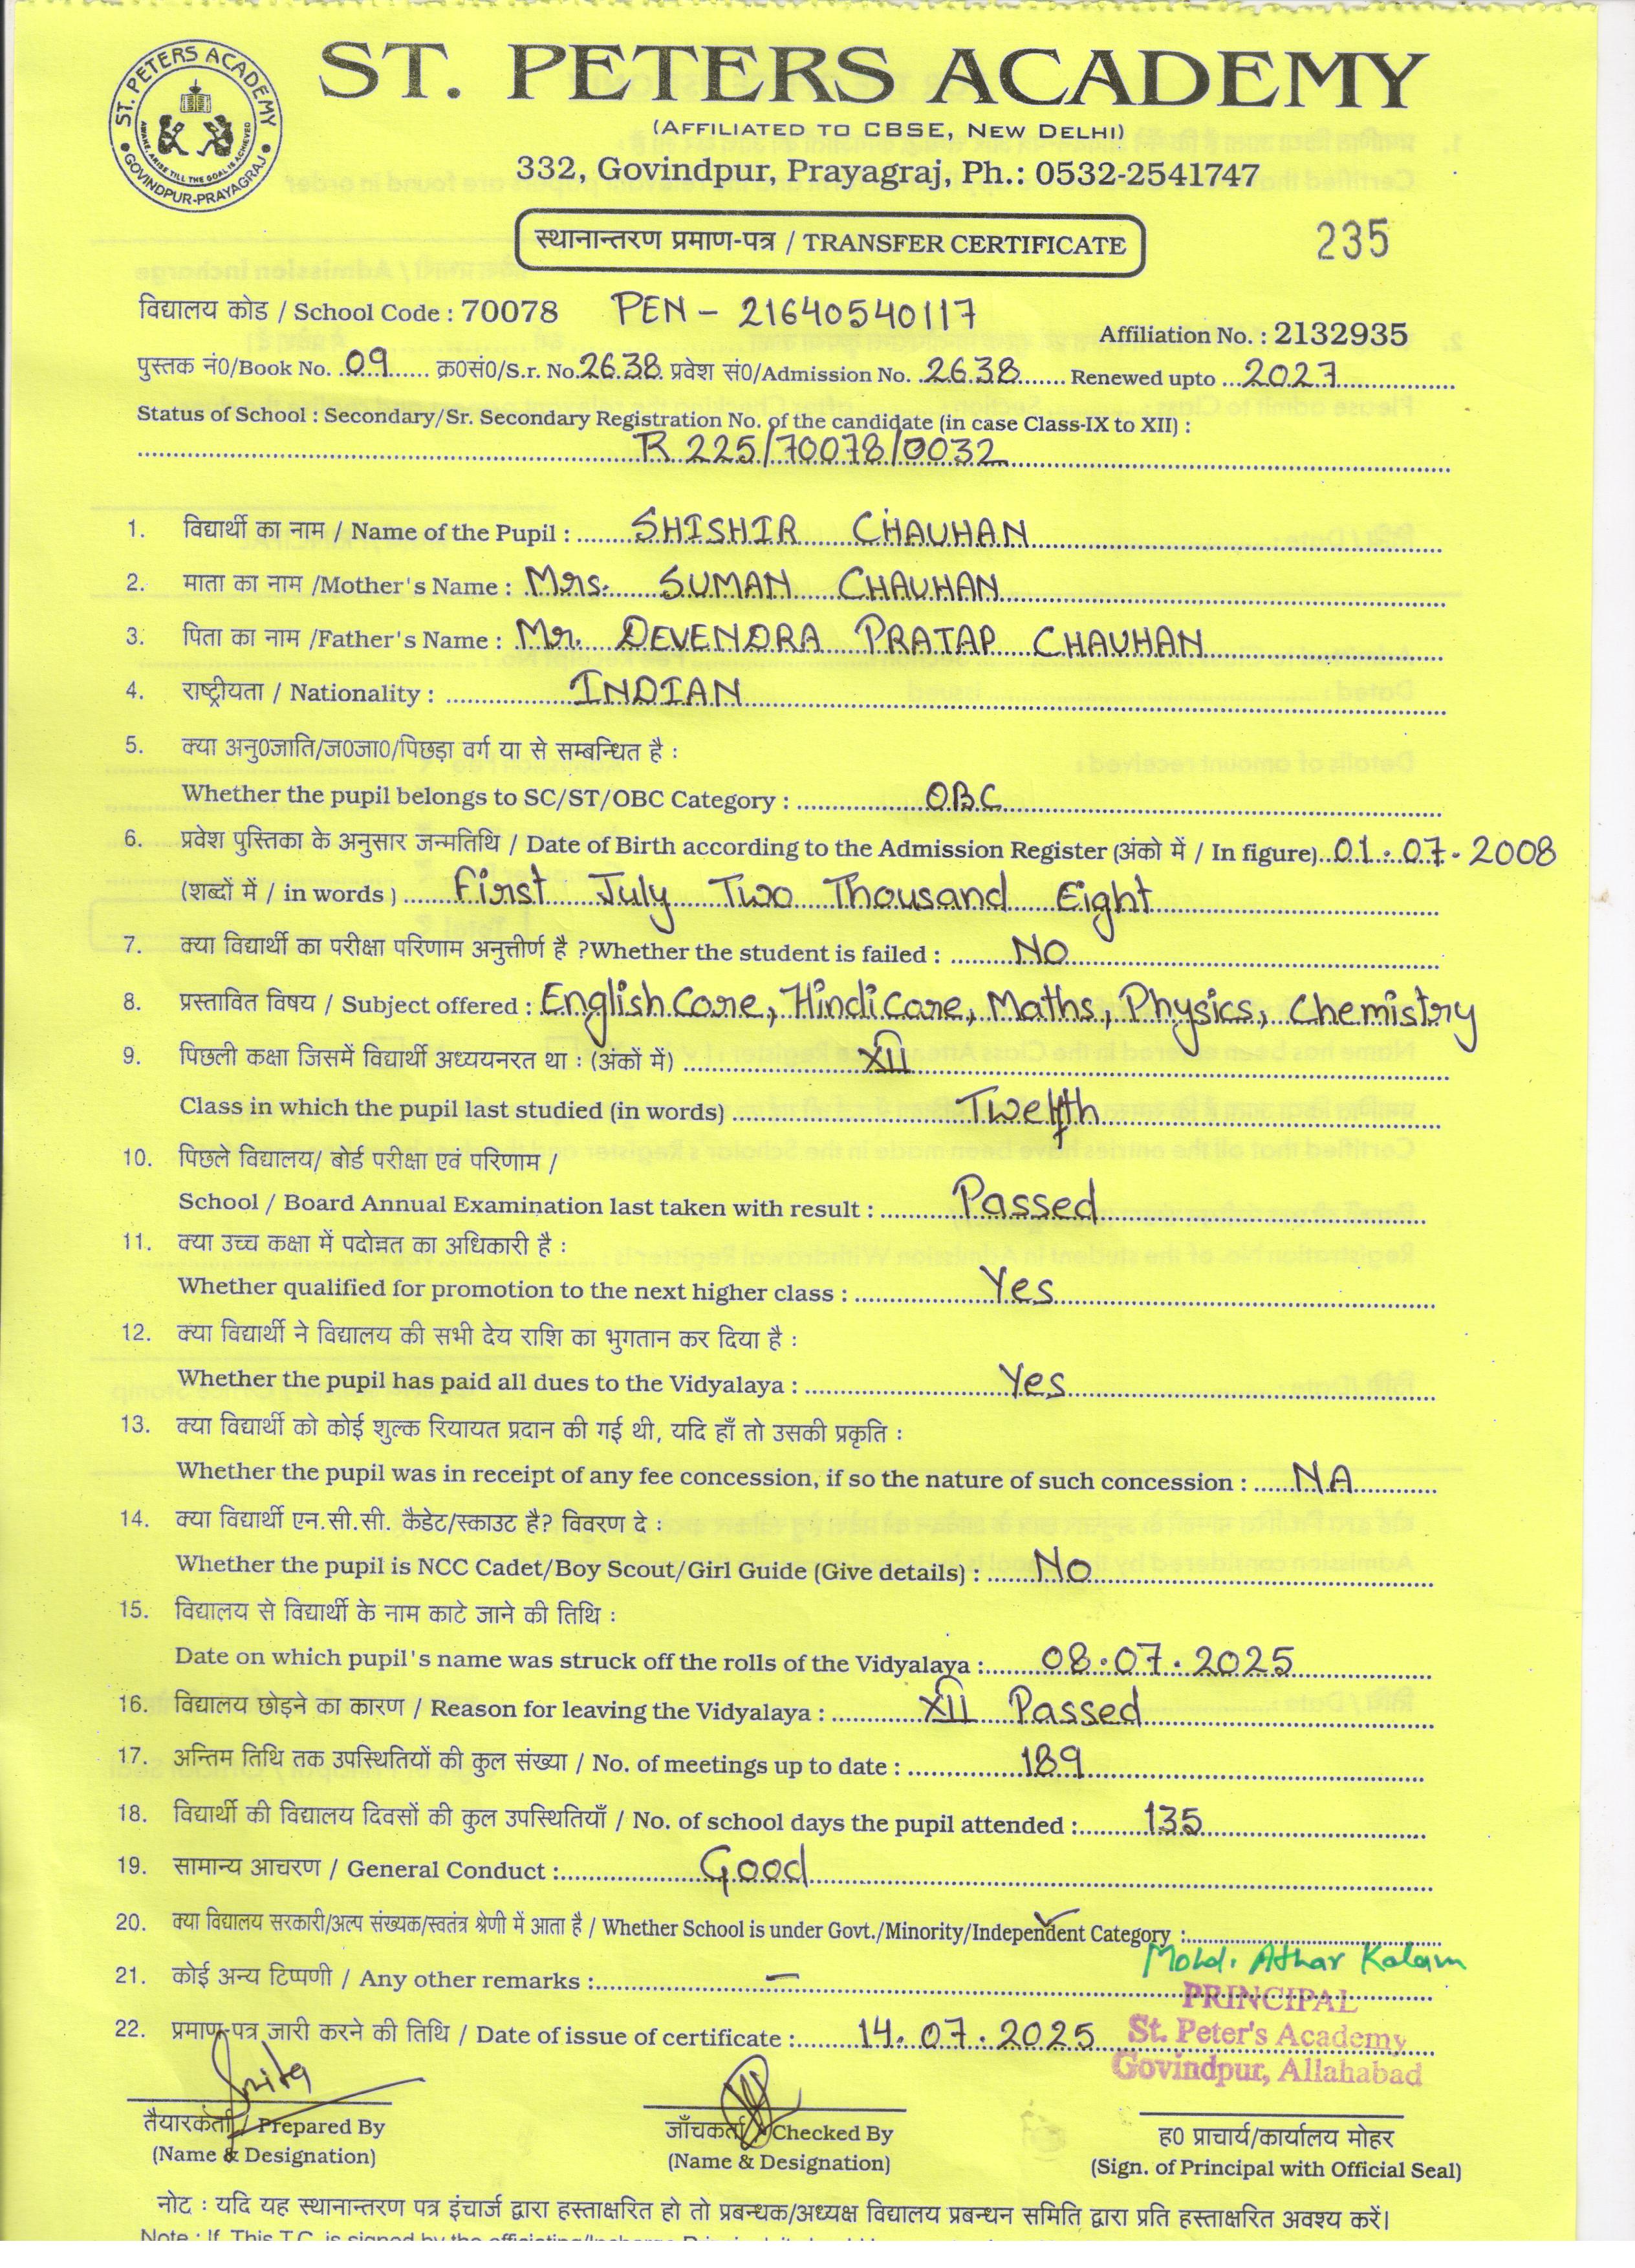 ST. PETERS ACADEMY
AWAKE, ARISE TILL THE GOAL IS ACHIEVED
GOVINDPUR-PRAYAGRAJ
ST. PETERS ACADEMY
(AFFILIATED TO CBSE, NEW DELHI)
332, Govindpur, Prayagraj, Ph.: 0532-2541747
स्थानान्तरण प्रमाण-पत्र / TRANSFER CERTIFICATE
235
विद्यालय कोड / School Code : 70078 PEN - 21640540117
Affiliation No. : 2132935
पुस्तक नं0/Book No. 09 क्र0सं0/S.r. No. 2638 प्रवेश सं0/Admission No. 2638 Renewed upto 2027
Status of School : Secondary/Sr. Secondary Registration No. of the candidate (in case Class-IX to XII) :
R 225/70078/0032
1. विद्यार्थी का नाम / Name of the Pupil : SHISHIR CHAUHAN
2. माता का नाम /Mother's Name : Mrs. SUMAN CHAUHAN
3. पिता का नाम /Father's Name : Mr. DEVENDRA PRATAP CHAUHAN
4. राष्ट्रीयता / Nationality : INDIAN
5. क्या अनु0जाति/ज0जा0/पिछड़ा वर्ग या से सम्बन्धित है :
Whether the pupil belongs to SC/ST/OBC Category : OBC
6. प्रवेश पुस्तिका के अनुसार जन्मतिथि / Date of Birth according to the Admission Register (अंको में / In figure) 01.07.2008
(शब्दों में / in words ) First July Two Thousand Eight
7. क्या विद्यार्थी का परीक्षा परिणाम अनुत्तीर्ण है ?Whether the student is failed : NO
8. प्रस्तावित विषय / Subject offered : English Core, Hindi Core, Maths, Physics, Chemistry
9. पिछली कक्षा जिसमें विद्यार्थी अध्ययनरत था : (अंकों में) XII
Class in which the pupil last studied (in words) Twelfth
10. पिछले विद्यालय/ बोर्ड परीक्षा एवं परिणाम /
School / Board Annual Examination last taken with result : Passed
11. क्या उच्च कक्षा में पदोन्नत का अधिकारी है :
Whether qualified for promotion to the next higher class : Yes
12. क्या विद्यार्थी ने विद्यालय की सभी देय राशि का भुगतान कर दिया है :
Whether the pupil has paid all dues to the Vidyalaya : Yes
13. क्या विद्यार्थी को कोई शुल्क रियायत प्रदान की गई थी, यदि हाँ तो उसकी प्रकृति :
Whether the pupil was in receipt of any fee concession, if so the nature of such concession : NA
14. क्या विद्यार्थी एन.सी.सी. कैडेट/स्काउट है? विवरण दे :
Whether the pupil is NCC Cadet/Boy Scout/Girl Guide (Give details) : No
15. विद्यालय से विद्यार्थी के नाम काटे जाने की तिथि :
Date on which pupil's name was struck off the rolls of the Vidyalaya : 08.07.2025
16. विद्यालय छोड़ने का कारण / Reason for leaving the Vidyalaya : XII Passed
17. अन्तिम तिथि तक उपस्थितियों की कुल संख्या / No. of meetings up to date : 189
18. विद्यार्थी की विद्यालय दिवसों की कुल उपस्थितियाँ / No. of school days the pupil attended : 135
19. सामान्य आचरण / General Conduct : Good
20. क्या विद्यालय सरकारी/अल्प संख्यक/स्वतंत्र श्रेणी में आता है / Whether School is under Govt./Minority/Independent Category :
Mohd. Athar Kalam
21. कोई अन्य टिप्पणी / Any other remarks : —
PRINCIPAL
22. प्रमाण-पत्र जारी करने की तिथि / Date of issue of certificate : 14.07.2025
St. Peter's Academy
Govindpur, Allahabad
तैयारकर्ता / Prepared By
(Name & Designation)
जाँचकर्ता / Checked By
(Name & Designation)
ह0 प्राचार्य/कार्यालय मोहर
(Sign. of Principal with Official Seal)
नोट : यदि यह स्थानान्तरण पत्र इंचार्ज द्वारा हस्ताक्षरित हो तो प्रबन्धक/अध्यक्ष विद्यालय प्रबन्धन समिति द्वारा प्रति हस्ताक्षरित अवश्य करें।
Note : If This T.C. is signed by the officiating/Incharge Principal